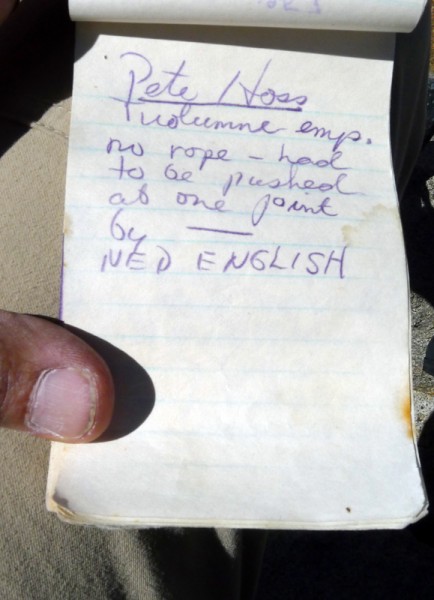 Pete Hoss
Tuolumne emp.
no rope - had
to be pushed
at one point
by ——
NED ENGLISH